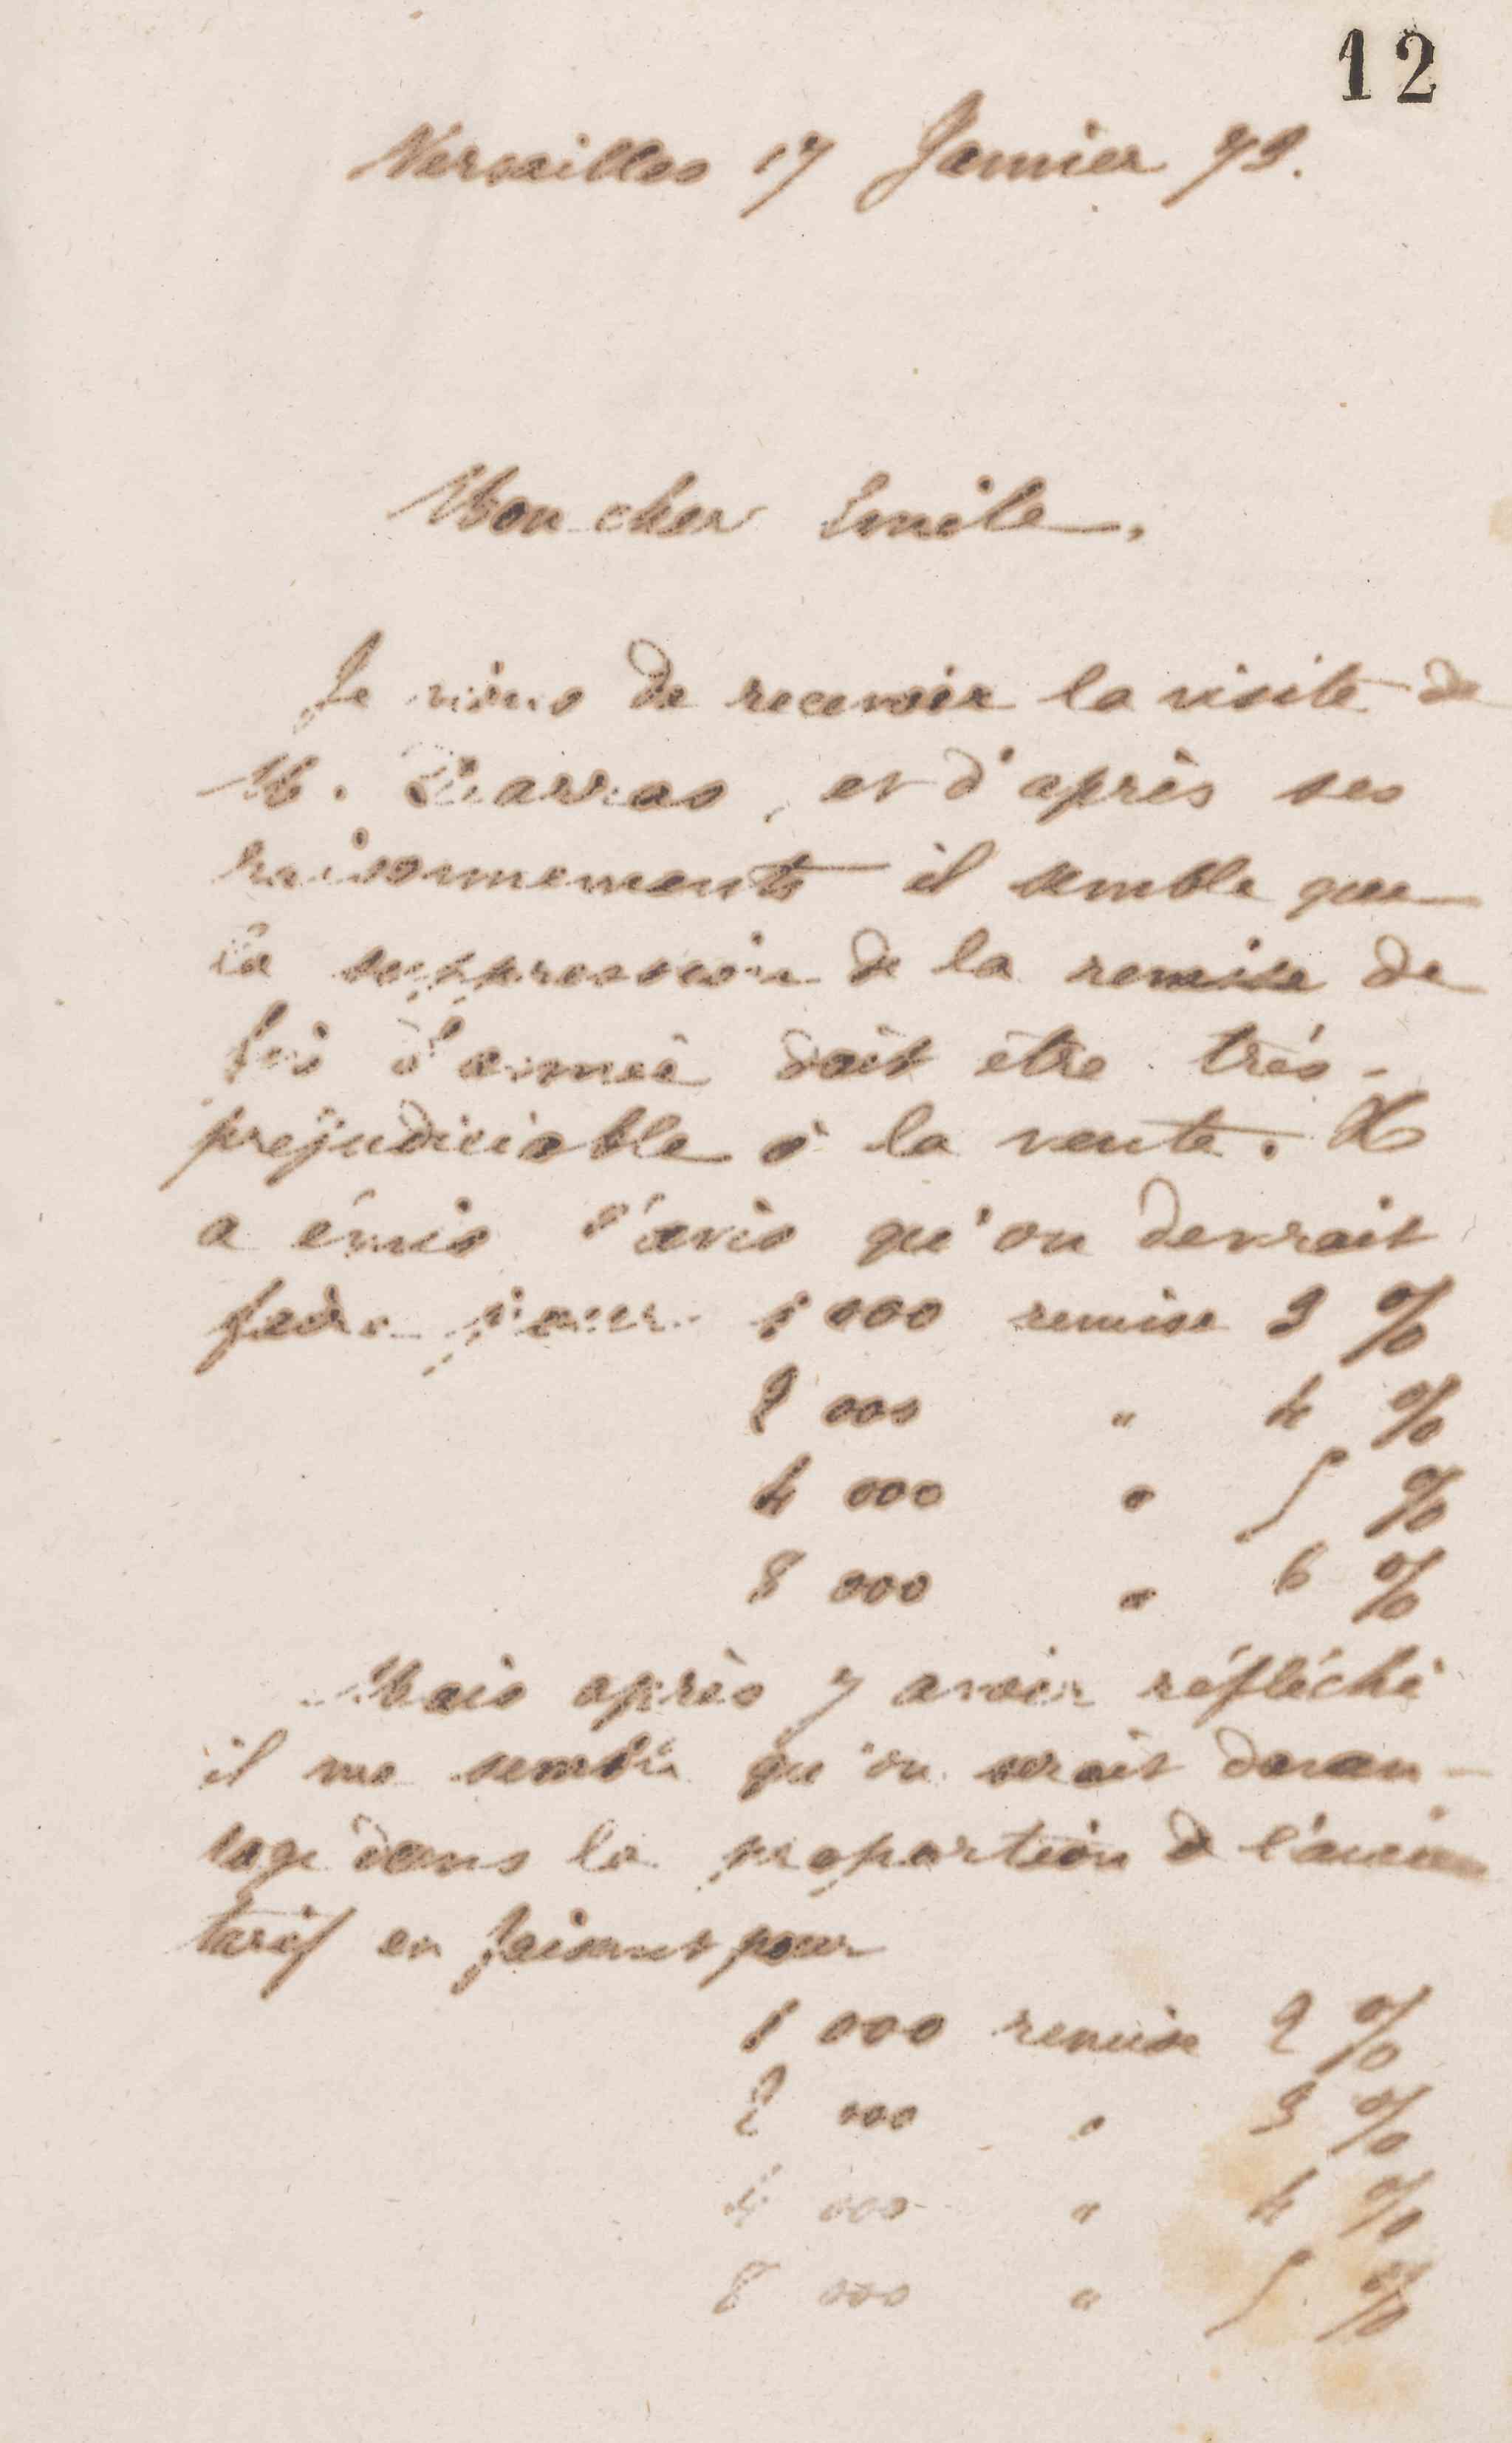 12
Versailles 17 Janvier 79.
Mon cher Emile,
Je viens de recevoir la visite de
M. et d'après ses
raisonnements il semble que
la suppression de la remise de
fin d'année doit être très-
préjudiciable à la vente. Il
a émis l'avis qu'on devrait
faire pour 1 000 remise 3 %
2 000 " 4 %
4 000 " 5 %
8 000 " 6 %
Mais après y avoir réfléchi
il me semble qu'on serait davan-
tage dans la proportion de l'ancien
tarif en faisant pour
1 000 remise 2 %
2 000 " 3 %
4 000 " 4 %
8 000 " 5 %